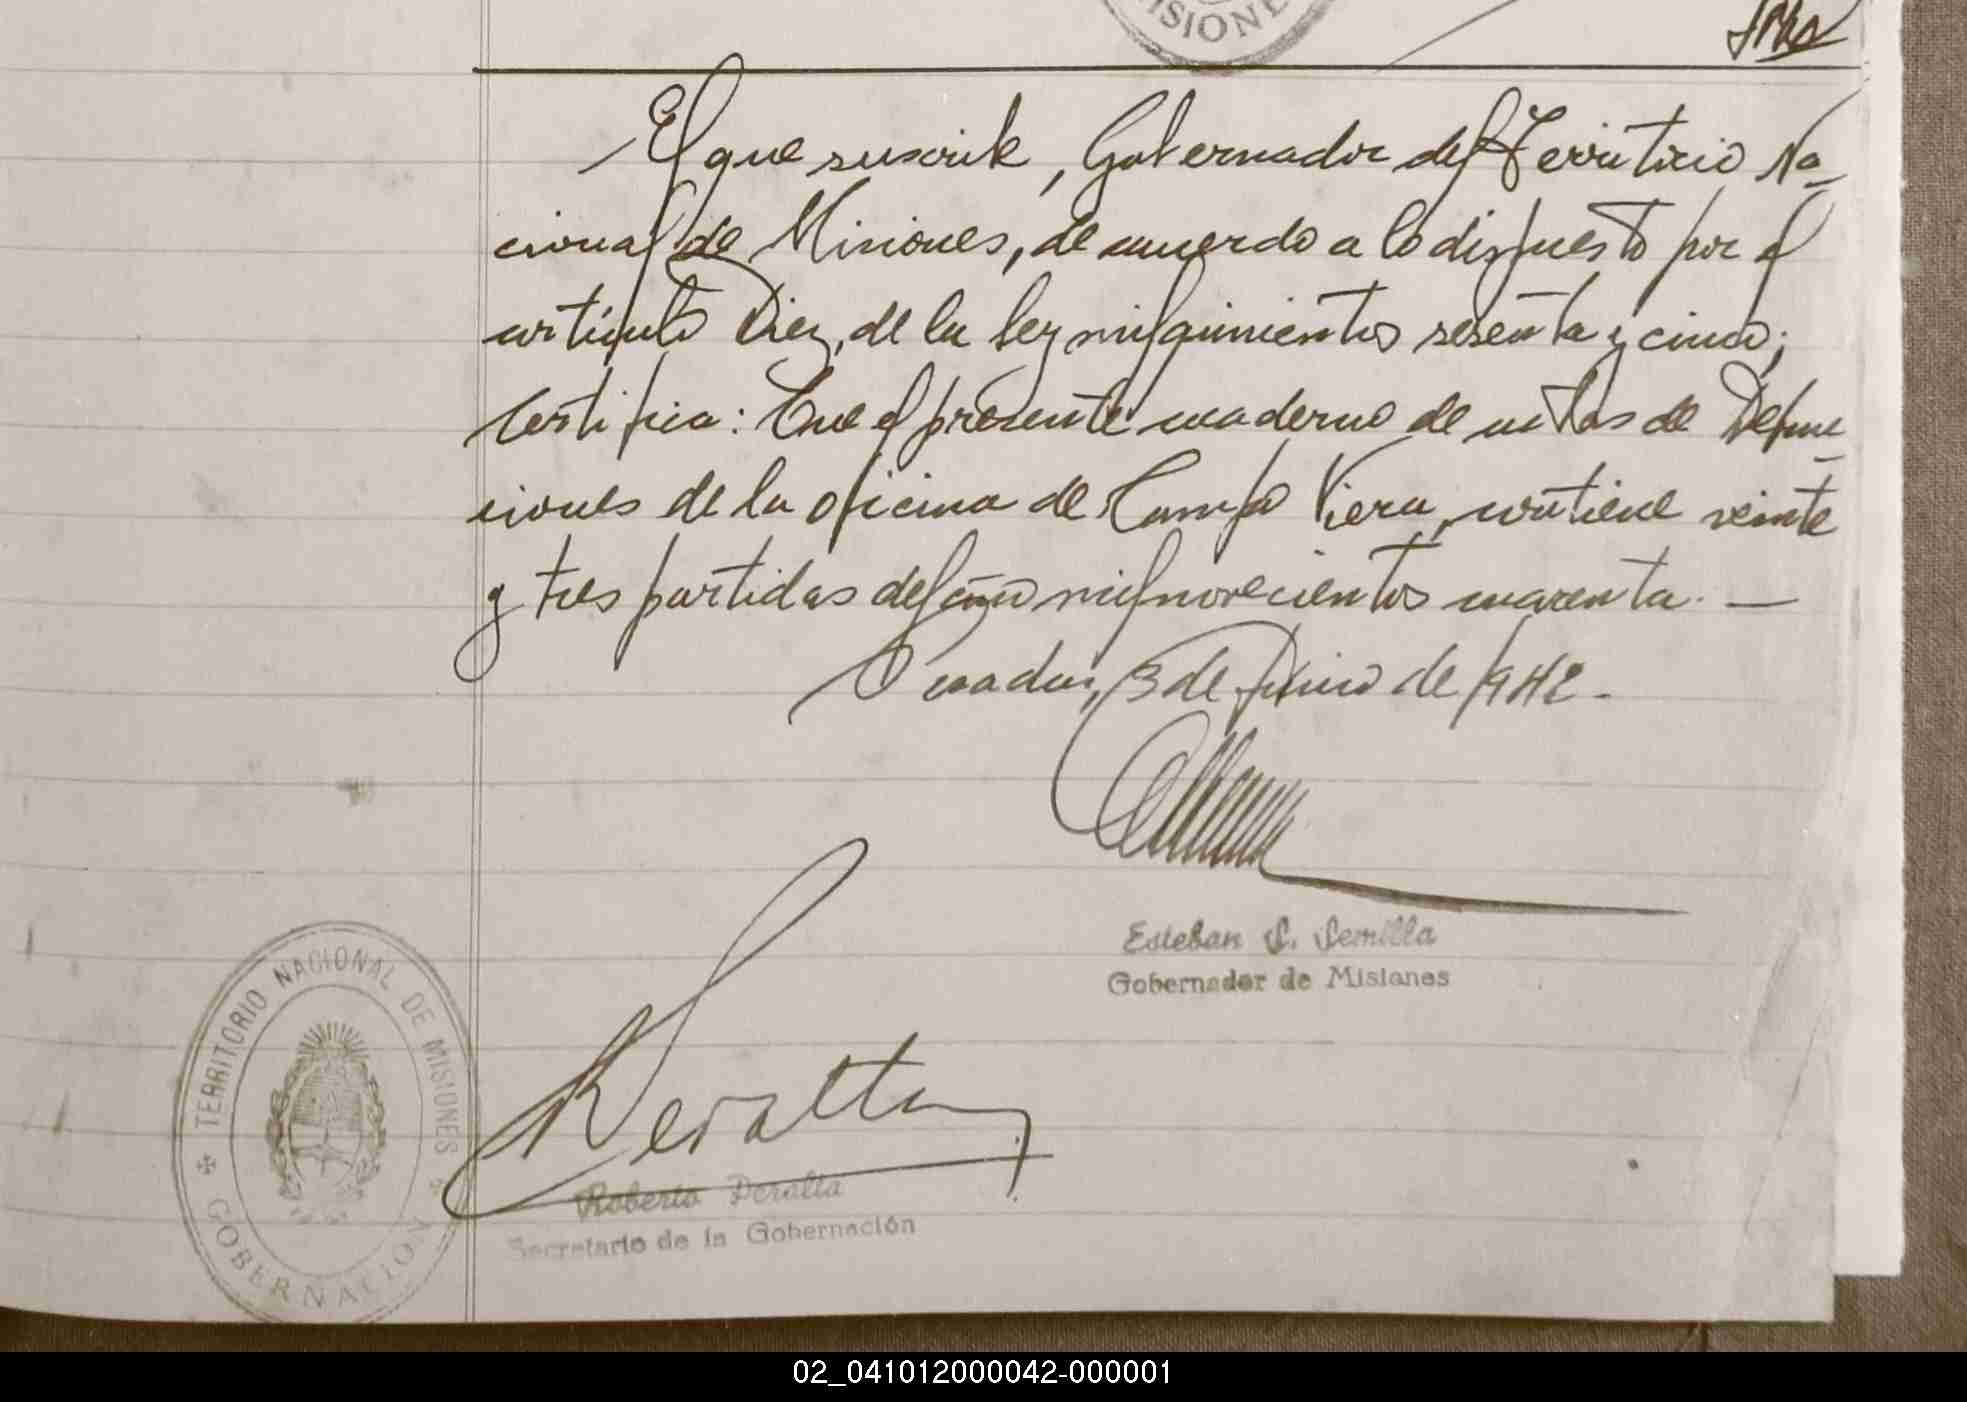 MISIONE
El que suscribe, Gobernador del Territorio Na-
cional de Misiones, de acuerdo a lo dispuesto por el
artículo Diez, de la ley mil quinientos sesenta y cinco;
Certifica: Que el presente cuaderno de actas de Defun-
ciones de la oficina de Campo Viera, contiene veinte
y tres partidas del año mil novecientos cuarenta. —
Posadas, 3 de Junio de 1942.-
Esteban S. Semilla
Gobernador de Misiones
TERRITORIO NACIONAL DE MISIONES
GOBERNACION
Peralta
Roberto Peralta
Secretario de la Gobernación
02_041012000042-000001